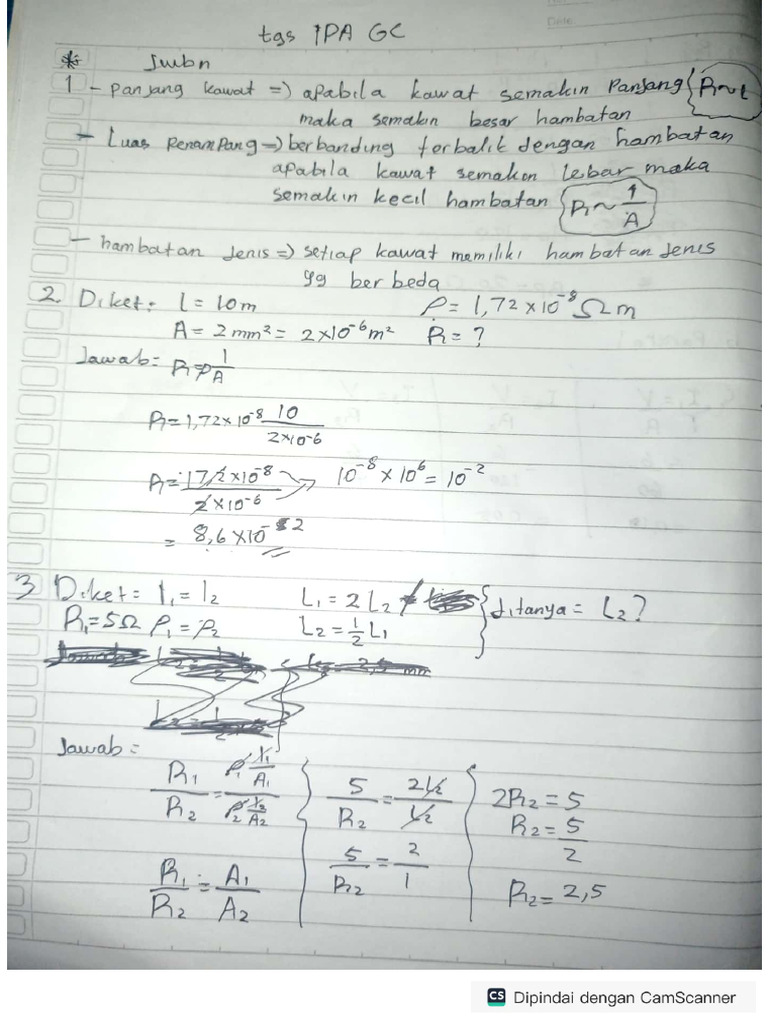 tgs IPA GC
* Jwbn
1 - Panjang kawat => apabila kawat semakin Panjang { R~L
maka semakin besar hambatan
- Luas PenamPang => berbanding terbalik dengan hambatan
apabila kawat semakon lebar maka
semakin kecil hambatan { R~ 1/A
- hambatan Jenis => setiap kawat memiliki hambatan Jenis
yg berbeda
2. Diket: l = 10m ρ = 1,72 x 10⁻⁸ Ωm
A = 2 mm² = 2x10⁻⁶ m² R = ?
Jawab = R=ρ 1/A
R = 1,72 x 10⁻⁸ 10/2x10⁻⁶
R = 17,2 x 10⁻⁸ / 2 x 10⁻⁶ → 10⁻⁸ x 10⁶ = 10⁻²
= 8,6 x 10⁻²
3 Diket = l₁ = l₂ L₁ = 2 L₂ } ditanya = L₂ ?
R₁ = 5Ω ρ₁ = ρ₂ L₂ = 1/2 L₁
Jawab =
R₁/R₂ = ρ₁ l₁/A₁ / ρ₂ l₂/A₂ } 5/R₂ = 2L₂/L₂ } 2R₂ = 5
R₂ = 5/2
R₁/R₂ = A₁/A₂ 5/R₂ = 2/1 R₂ = 2,5
CS Dipindai dengan CamScanner